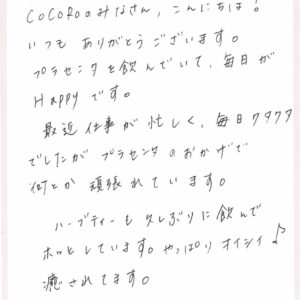 CoCoRoのみなさん、こんにちは!
いつも ありがとうございます。
プラセンタを飲んでいて、毎日が
Happyです。
最近仕事が忙しく、毎日クタクタ
でしたが プラセンタのおかげで
何とか 頑張れています。
ハーブティーも久しぶりに飲んで
ホッとしています。やっぱりオイシイ♪
癒されてます。